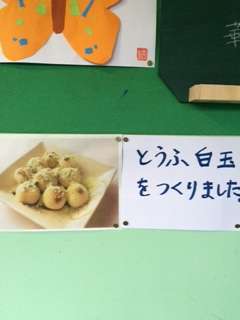 とうふ、白玉
をつくりました